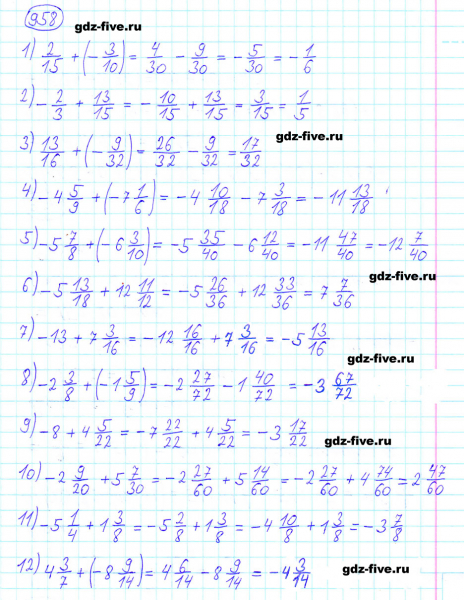 958 gdz-five.ru
1) 2/15 + (-3/10) = 4/30 - 9/30 = -5/30 = -1/6
2) -2/3 + 13/15 = -10/15 + 13/15 = 3/15 = 1/5
gdz-five.ru
3) 13/16 + (-9/32) = 26/32 - 9/32 = 17/32
4) -4 5/9 + (-7 1/6) = -4 10/18 - 7 3/18 = -11 13/18
5) -5 7/8 + (-6 3/10) = -5 35/40 - 6 12/40 = -11 47/40 = -12 7/40
gdz-five.ru
6) -5 13/18 + 12 11/12 = -5 26/36 + 12 33/36 = 7 7/36
7) -13 + 7 3/16 = -12 16/16 + 7 3/16 = -5 13/16
gdz-five.ru
8) -2 3/8 + (-1 5/9) = -2 27/72 - 1 40/72 = -3 67/72
9) -8 + 4 5/22 = -7 22/22 + 4 5/22 = -3 17/22
gdz-five.ru
10) -2 9/20 + 5 7/30 = -2 27/60 + 5 14/60 = -2 27/60 + 4 74/60 = 2 47/60
11) -5 1/4 + 1 3/8 = -5 2/8 + 1 3/8 = -4 10/8 + 1 3/8 = -3 7/8
12) 4 3/7 + (-8 9/14) = 4 6/14 - 8 9/14 = -4 3/14
gdz-five.ru